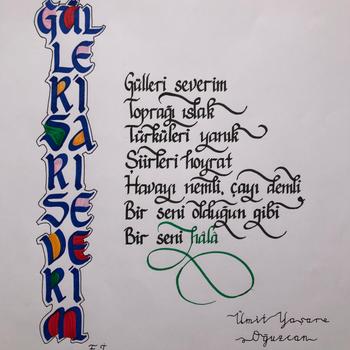 GÜL
LE
Rİ
SA
RI
SE
VE
RİM
Gülleri severim
Toprağı ıslak
Türküleri yanık
Şiirleri hoyrat
Havayı nemli, çayı demli
Bir seni olduğun gibi
Bir seni hâlâ
Ümit Yaşar
Oğuzcan